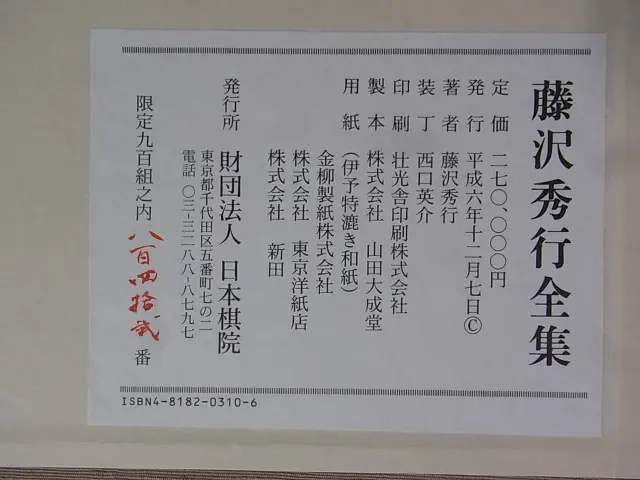 藤沢秀行全集
定価 二七〇、〇〇〇円
発行 平成六年十二月七日Ⓒ
著者 藤沢秀行
装丁 西口英介
印刷 壮光舎印刷株式会社
製本 株式会社 山田大成堂
用紙 (伊予特漉き和紙)
金柳製紙株式会社
株式会社 東京洋紙店
株式会社 新田
発行所 財団法人 日本棋院
東京都千代田区五番町七の二
電話 〇三-三二八八-八七九七
限定九百組之内 八百四拾弐番
ISBN4-8182-0310-6